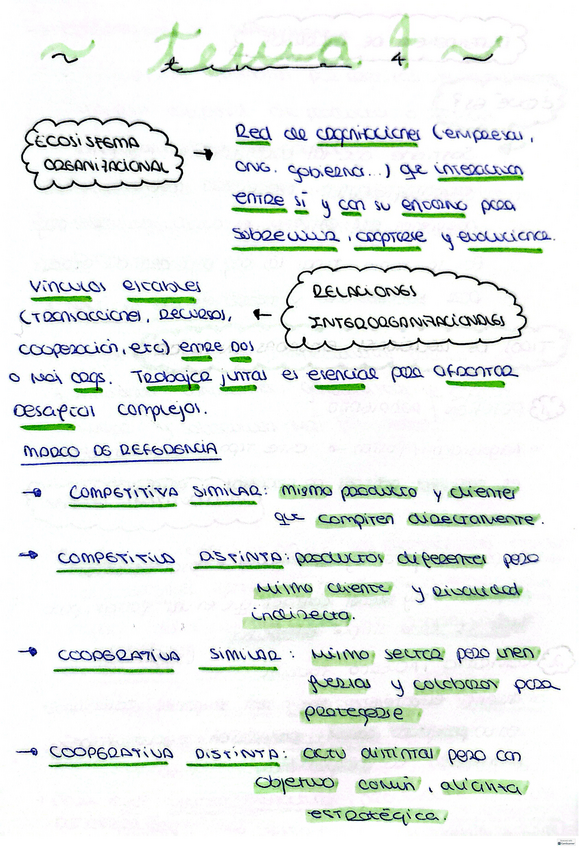 ~ tema 4 ~
ECOSISTEMA
ORGANIZACIONAL
→ Red de organizaciones (empresas,
ONG, gobierno...) que interactúan
entre sí y con su entorno para
sobrevivir, adaptarse y evolucionar.
RELACIONES
INTERORGANIZACIONALES
Vínculos estables
(transacciones, recursos,
cooperación, etc) entre dos
o más orgs. Trabajar juntas es esencial para afrontar
desafíos complejos.
MARCO DE REFERENCIA
→ COMPETITIVA SIMILAR: mismo producto y clientes
que compiten directamente.
→ COMPETITIVA DISTINTA: productos diferentes pero
mismo cliente y rivalidad
indirecta.
→ COOPERATIVA SIMILAR: mismo sector pero unen
fuerzas y colaboran para
protegerse
→ COOPERATIVA DISTINTA: actv distintas pero con
objetivo común, alianza
estratégica.